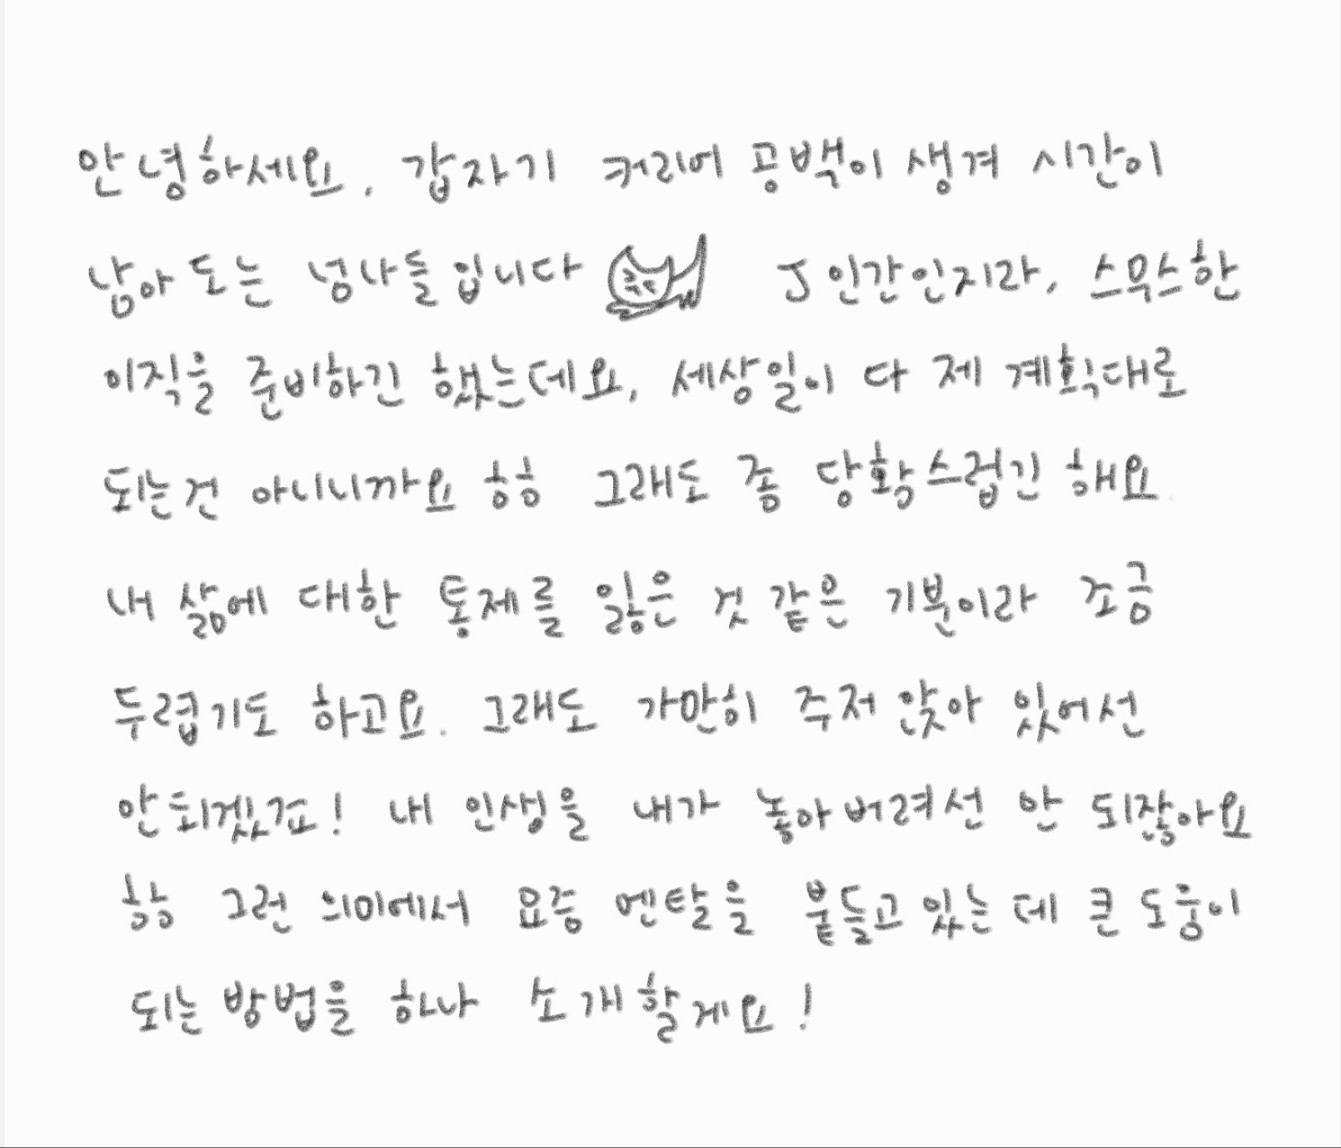 안녕하세요. 갑자기 커리어 공백이 생겨 시간이
남아 도는 넝나들입니다 J인간인지라, 스무스한
이직을 준비하긴 했는데요, 세상일이 다 제 계획대로
되는건 아니니까요 핳핳 그래도 좀 당황스럽긴 해요.
내 삶에 대한 통제를 잃은 것 같은 기분이라 조금
두렵기도 하고요. 그래도 가만히 주저 앉아 있어선
안되겠죠! 내 인생을 내가 놓아버려선 안 되잖아요
그런 의미에서 요즘 멘탈을 붙들고 있는 데 큰 도움이
되는 방법을 하나 소개할게요!